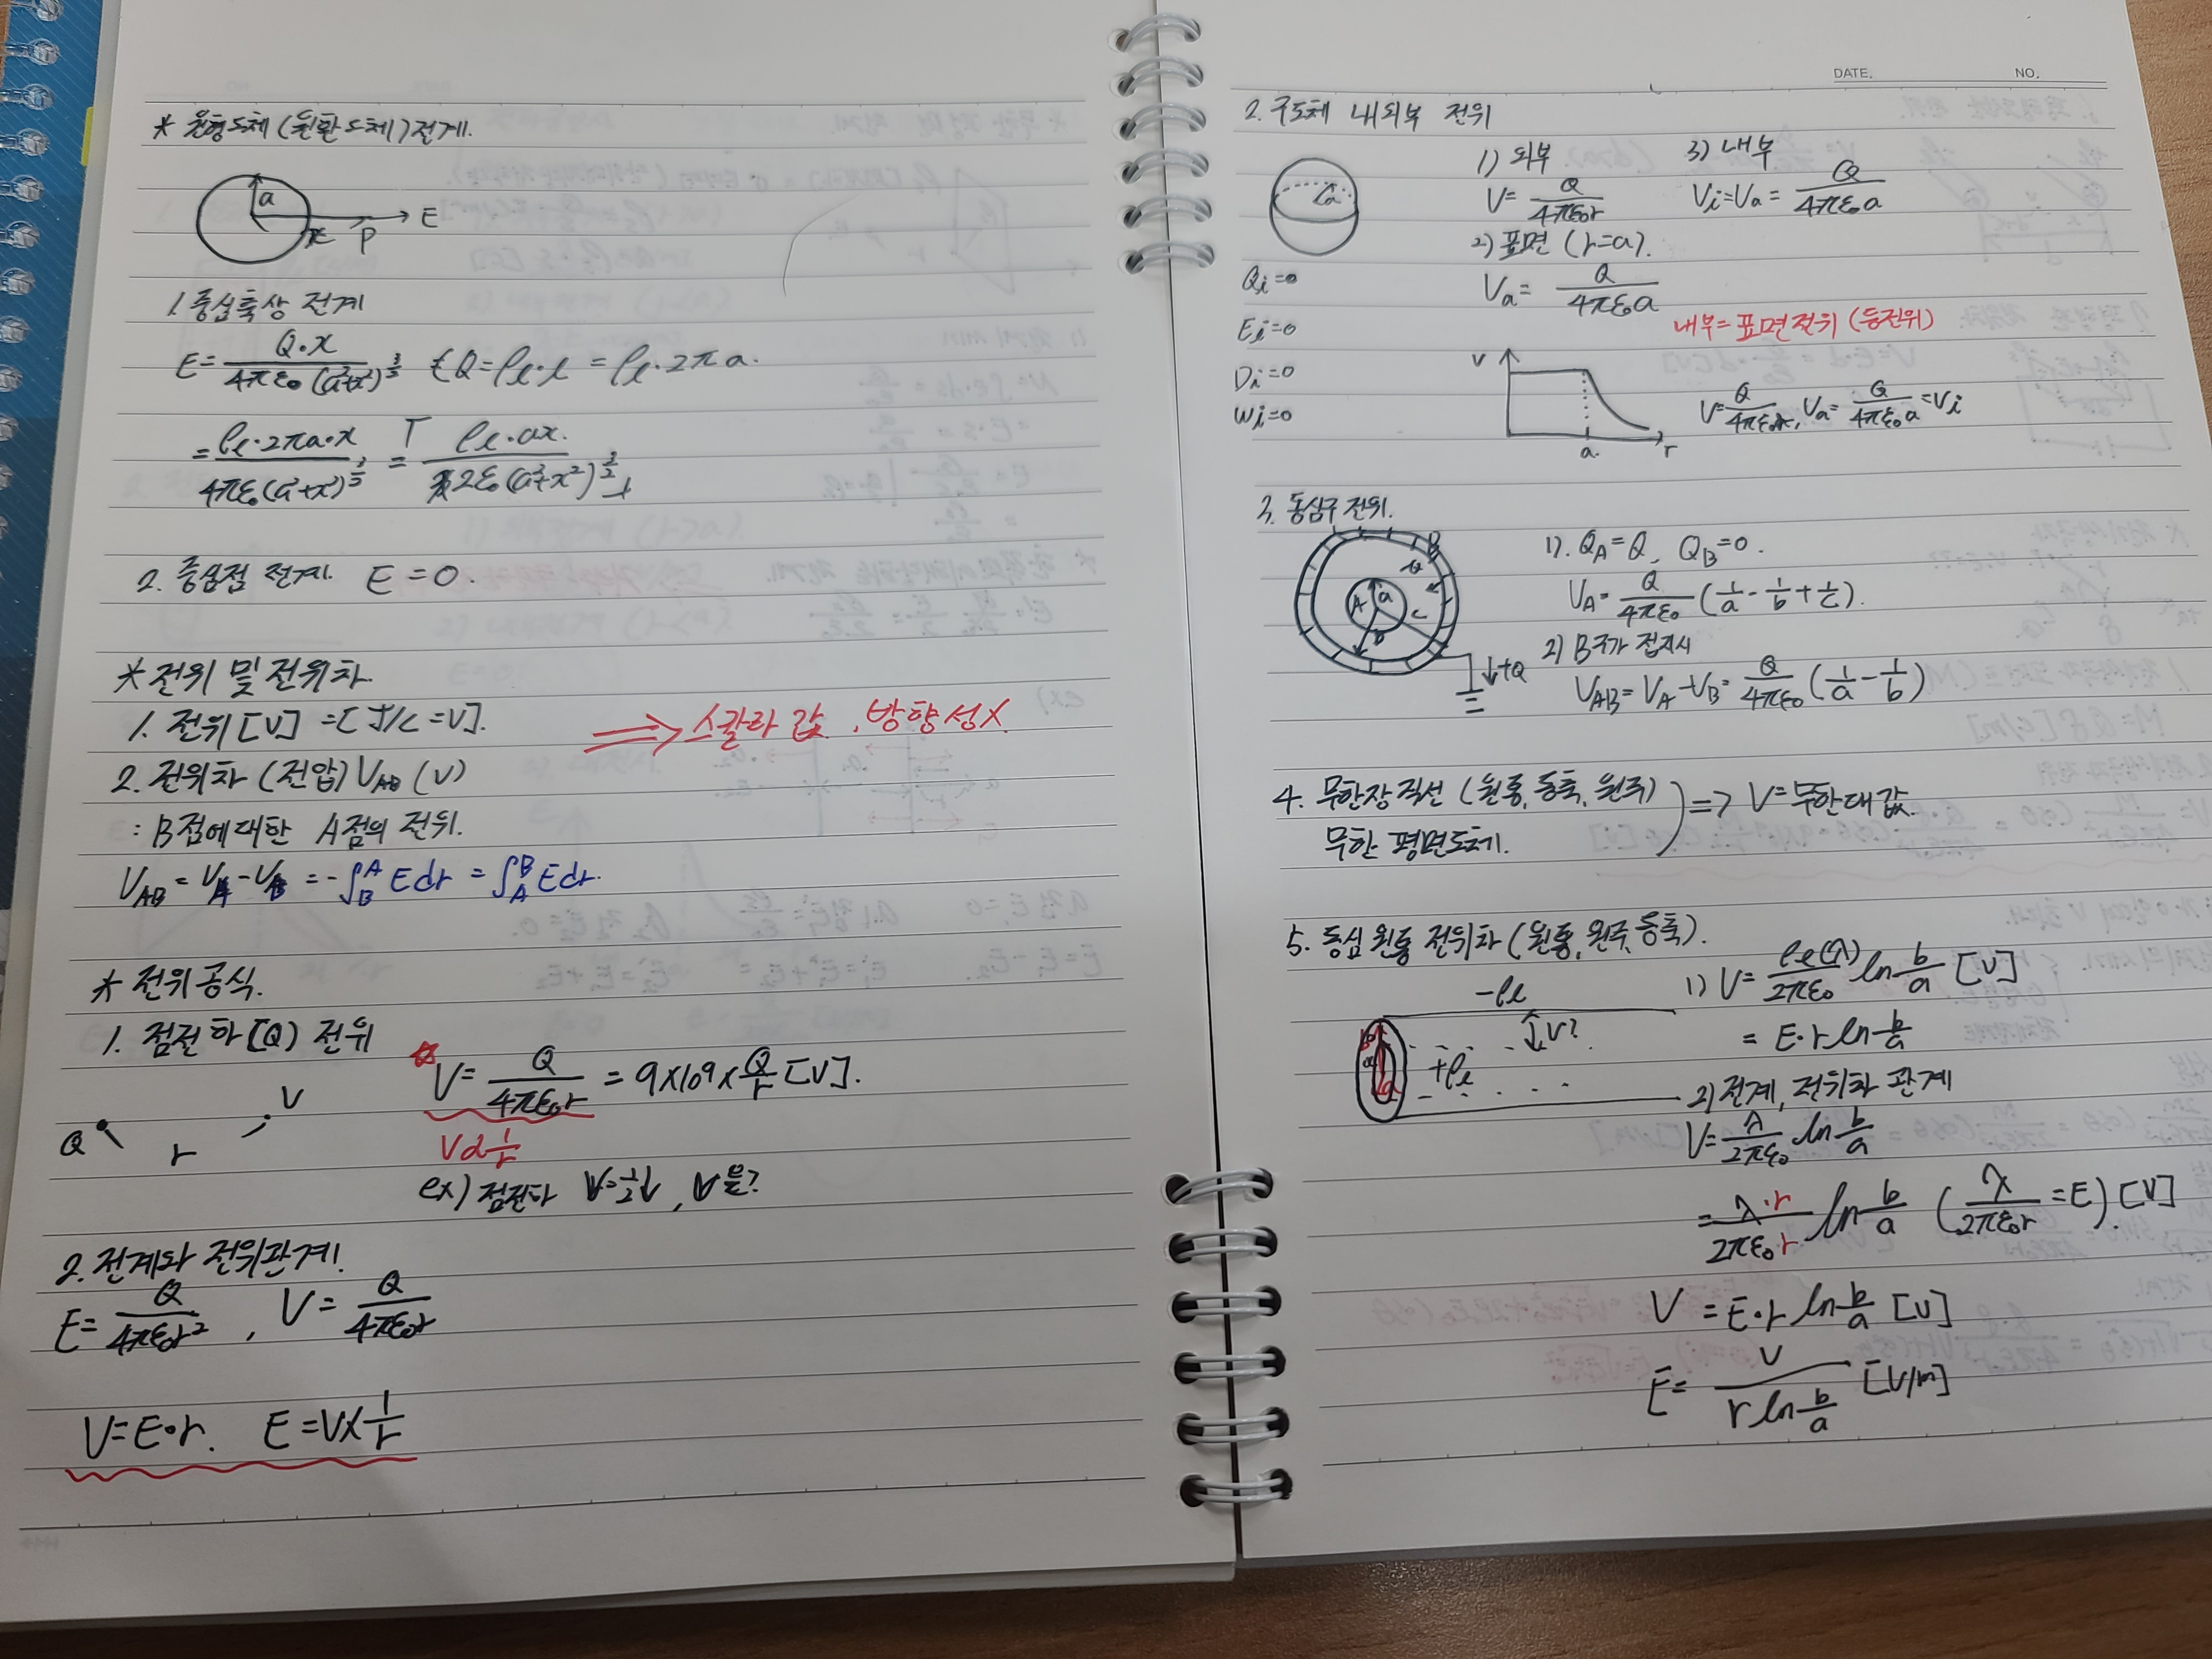 * 원형도체(원환도체)전계.
a
x P E
1. 중심축상 전계
E = Q·x / 4πε₀(a²+x²)^3/2 Q = ρl·l = ρl·2πa.
= ρl·2πa·x / 4πε₀(a²+x²)^3/2 = ρl·ax. / 2ε₀(a²+x²)^3/2
2. 중심점 전계. E = 0.
* 전위 및 전위차.
1. 전위[V] = [J/C = V]. ⇒ 스칼라 값, 방향성X
2. 전위차 (전압) V_AB (V)
: B점에 대한 A점의 전위.
V_AB = V_A - V_B = -∫_B^A E dr = ∫_A^B E dr.
* 전위공식.
1. 점전하[Q] 전위
☆ V = Q / 4πε₀r = 9×10⁹ × Q/r [V].
Q r V
V ∝ 1/r
ex) 점전하 V=1/2↓, r은?
2. 전계와 전위관계!
E = Q / 4πε₀r² , V = Q / 4πε₀r
V = E·r. E = V × 1/r
DATE. NO.
2. 구도체 내외부 전위
a
1) 외부
V = Q / 4πε₀r
2) 표면 (r=a).
Va = Q / 4πε₀a
3) 내부
Vi = Va = Q / 4πε₀a
Qi=0
Ei=0
Di=0
Wi=0
내부=표면전위 (등전위)
V a. r
V = Q / 4πε₀r, Va = Q / 4πε₀a = Vi
3. 동심구 전위.
A a b c B
+Q
1). Q_A = Q, Q_B = 0.
V_A = Q / 4πε₀ (1/a - 1/b + 1/c).
2) B구가 접지시
V_AB = V_A - V_B = Q / 4πε₀ (1/a - 1/b)
4. 무한장 직선 (원통, 동축, 원주)
무한 평면도체. ) ⇒ V=무한대 값.
5. 동심 원통 전위차 (원통, 원주, 동축).
-ρl
b a +ρl V?
1) V = ρl(λ) / 2πε₀ ln b/a [V]
= E·r ln b/a
2) 전계, 전위차 관계
V = λ / 2πε₀ ln b/a
= λ·r / 2πε₀r ln b/a (λ / 2πε₀r = E). [V]
V = E·r ln b/a [V]
E = V / r ln b/a [V/m]